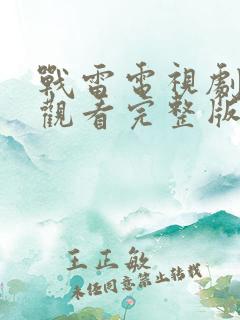 戰雷電視劇
觀看完整版
王正敏
未經同意禁止轉載